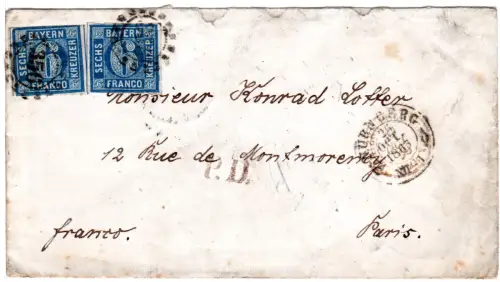 BAYERN BAYERN
SECHS 6 KREUZER SECHS 6 KREUZER
FRANCO FRANCO
Monsieur Konrad Loffer
NUERNBERG
12 Rue de Montmorency
P.D.
franco. Paris.